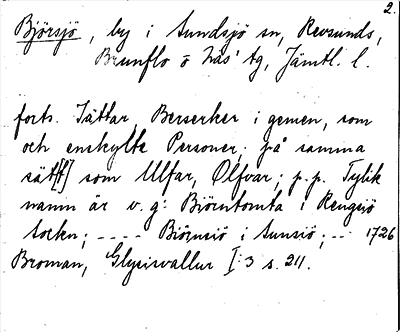 2.
Björsjö, by i Sundsjö sn, Revsunds,
Brunflo o. Näs' tg, Jämtl. l.
forts. Jättar, Berserker i gemen, som
och enskylte Personer; på samma
sät[t] som Ulfar, Olfvar; p.p. Tylik
namn är v.g: Björntomta i Rengsiö
Sockn; ---- Biörnsiö i Sunsiö; -- 1726
Broman, Glysisvallur I:3 s. 211.